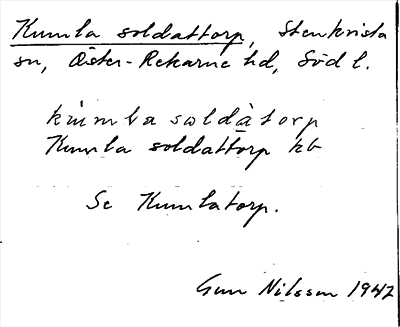 Kumla soldattorp, Stenkvista
sn, Öster-Rekarne hd, Söd l.
kùmla saldàtorp
Kumla soldattorp kb
Se Kumlatorp.
Gun Nilsson 1947